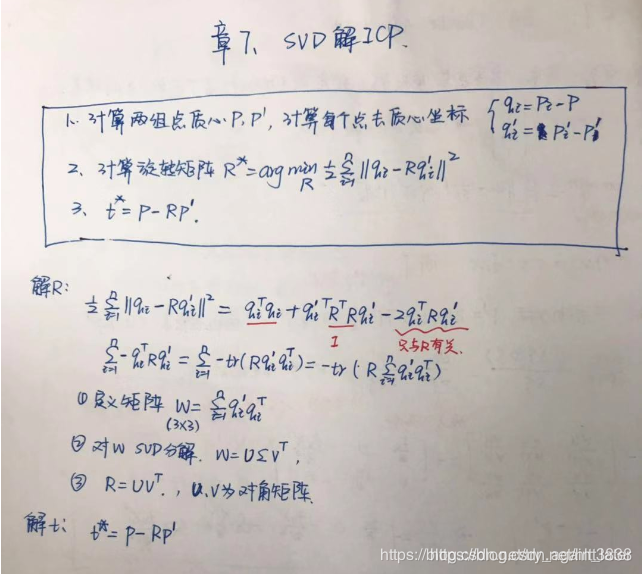 章7、SVD解ICP.
1、计算两组点质心P,P',计算每个点去质心坐标 { qᵢ=Pᵢ-P
qᵢ'=Pᵢ'-P'
2、计算旋转矩阵 R*=arg min_R ½ ∑ᵢ₌₁ⁿ ||qᵢ-Rqᵢ'||²
3、t*=P-RP'.
解R:
½ ∑ᵢ₌₁ⁿ ||qᵢ-Rqᵢ'||² = qᵢᵀqᵢ+qᵢ'ᵀRᵀRqᵢ'-2qᵢᵀRqᵢ'
I 只与R有关.
∑ᵢ₌₁ⁿ -qᵢᵀRqᵢ' = ∑ᵢ₌₁ⁿ -tr(Rqᵢ'qᵢᵀ) = -tr(R∑ᵢ₌₁ⁿ qᵢ'qᵢᵀ)
① 定义矩阵 W=∑ᵢ₌₁ⁿ qᵢ'qᵢᵀ
(3×3)
② 对W SVD分解. W=UΣVᵀ,
③ R=UVᵀ., U,V为对角矩阵.
解t: t*=P-RP'